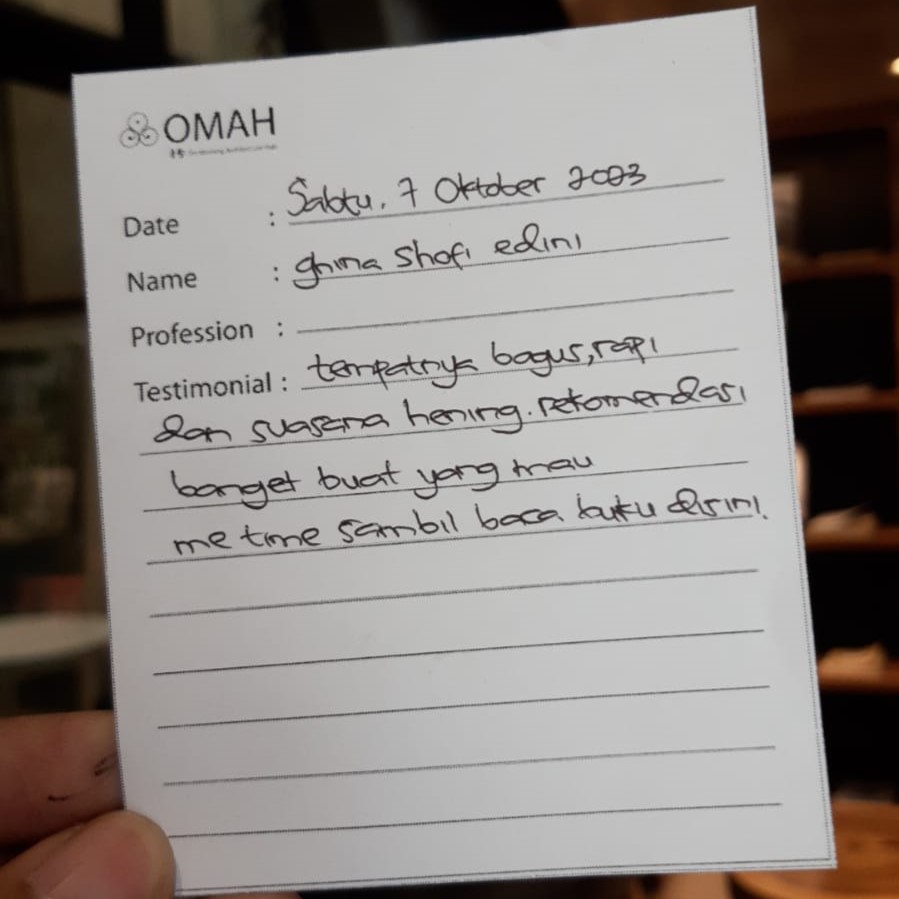 OMAH
Date : Sabtu, 7 Oktober 2023
Name : ghina shofi edini
Profession :
Testimonial : tempatnya bagus, rapi
dan suasana hening. rekomendasi
banget buat yang mau
me time sambil baca buku disini.